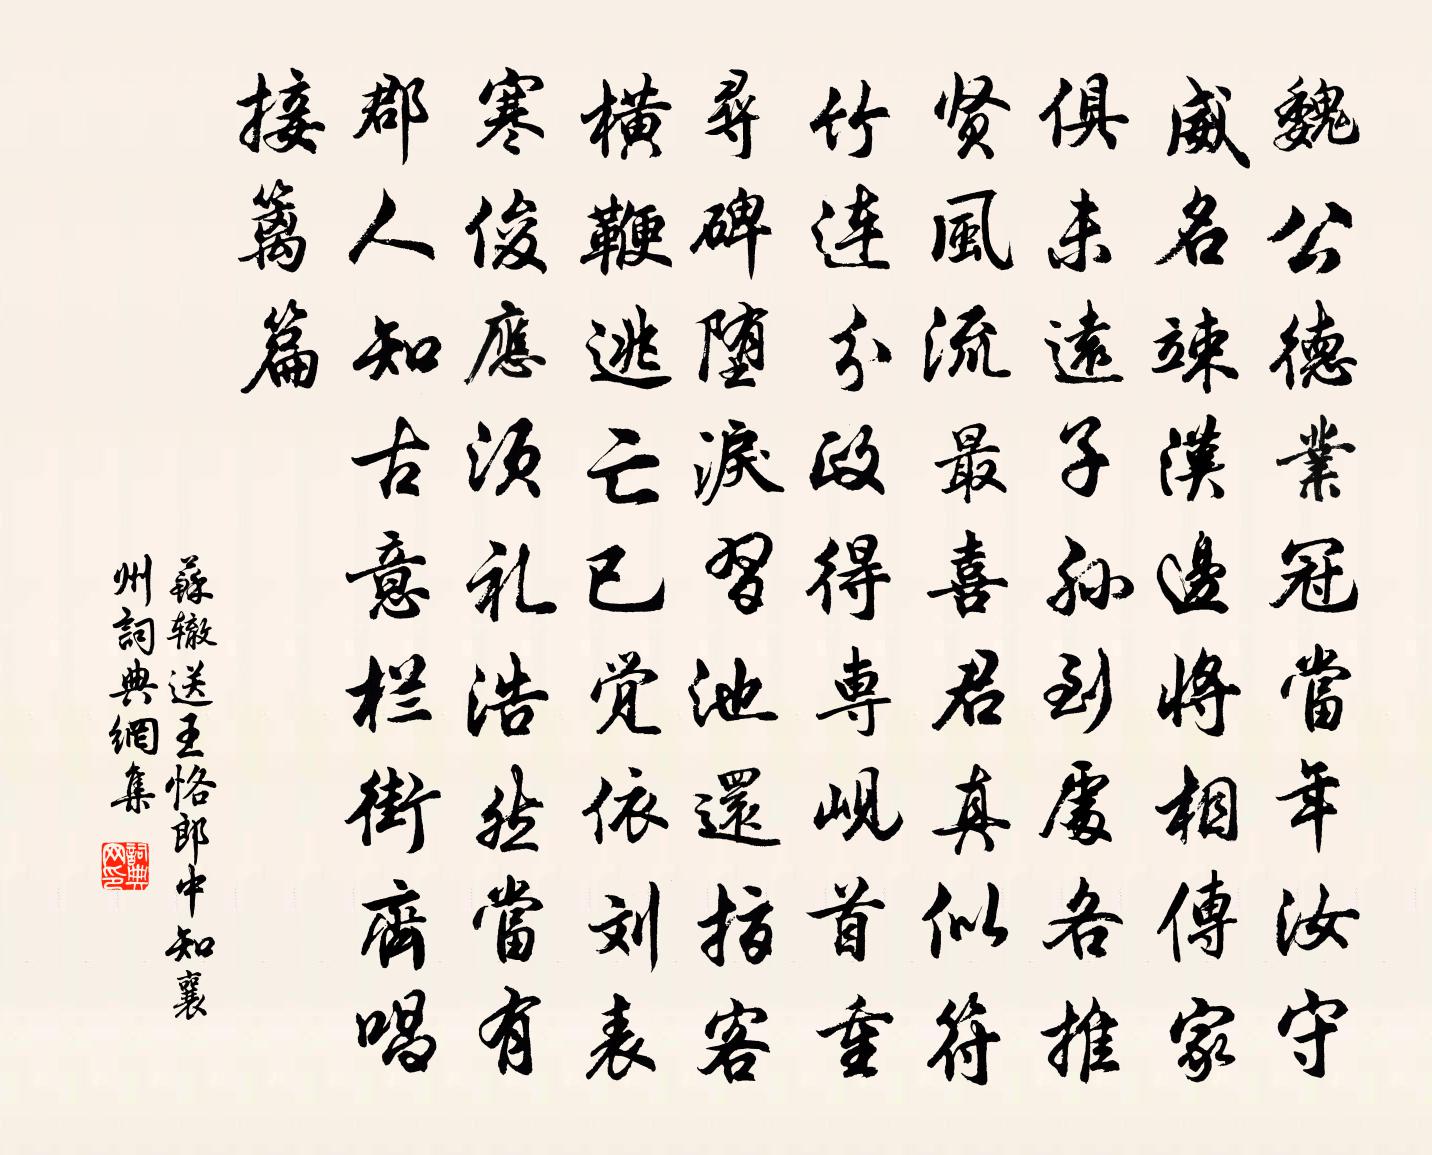 魏公德業冠當年汝守
威名竦漢邊將相傳家
俱未遠子孫到處各推
贤風流最喜君真似符
竹連分政得専峴首重
尋碑堕淚習池還指客
横鞭逃亡已觉依刘表
寒俊應须礼浩然當有
郡人知古意栏街齊唱
接篱篇
蘇辙送王恪郎中知襄
州詞典網集
詞典网印